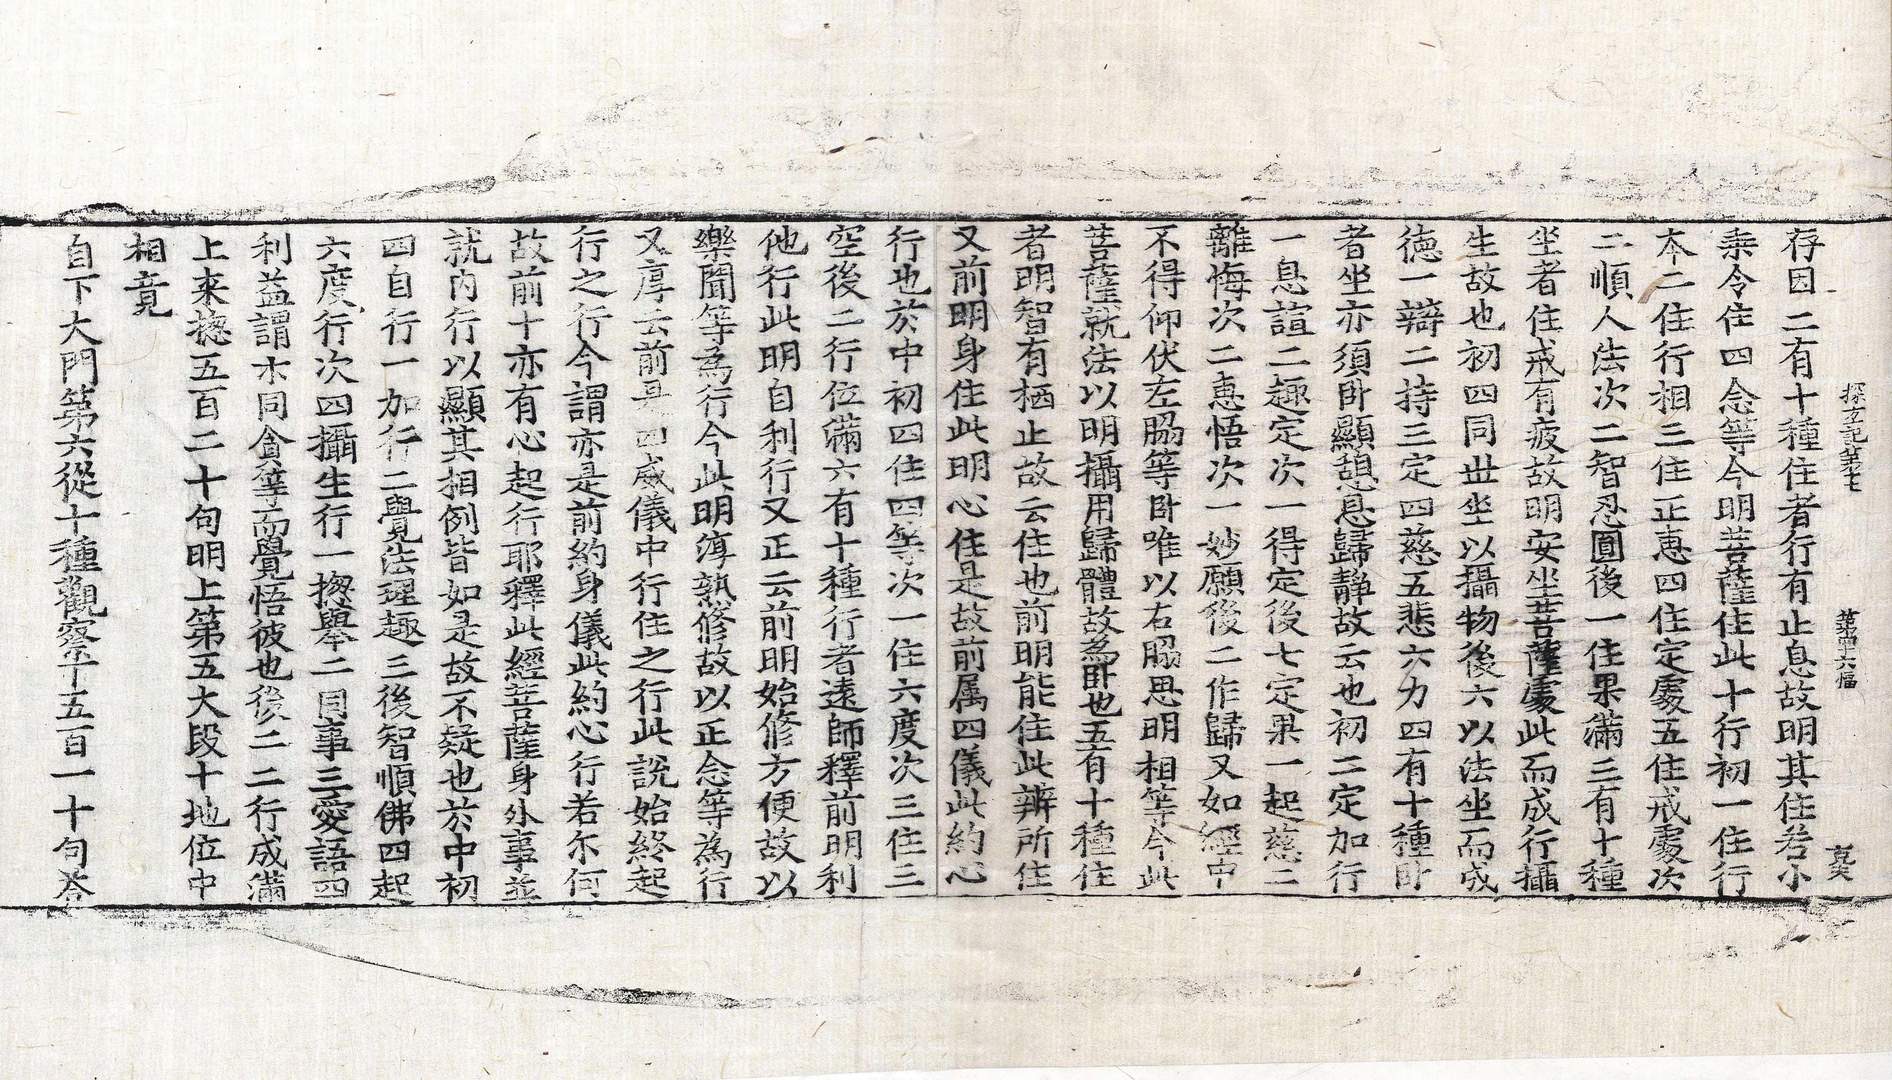 探玄記第七　第四十六幅　克夫
存因二有十種住者行有止息故明其住若小
乘令住四念等今明菩薩住此十行初一住行
本二住行相三住正惠四住定處五住戒處次
二順人法次二智忍圓後一住果滿三有十種
坐者住戒有疲故明安坐菩薩處此而成行攝
生故也初四同世坐以攝物後六以法坐而成
德一辯二持三定四慈五悲六力四有十種卧
者坐亦須卧顯憩息歸静故云也初二定加行
一息諠二趣定次一得定後七定果一起慈二
離悔次二惠悟次一妙願後二作歸又如經中
不得仰伏左脇等卧唯以右脇思明相等今此
菩薩就法以明攝用歸體故為卧也五有十種住
者明智有栖止故云住也前明能住此辨所住
又前明身住此明心住是故前属四儀此約心
行也於中初四住四等次一住六度次三住三
空後二行位滿六有十種行者遠師釋前明利
他行此明自利行又正云前明始修方便故以
樂聞等為行今此明淳熟修故以正念等為行
又㫗云前是四威儀中行住之行此說始終起
行之行今謂亦是前約身儀此約心行若尔何
故前十亦有心起行耶釋此經菩薩身外事並
就内行以顯其相例皆如是故不疑也於中初
四自行一加行二覺法理趣三後智順佛四起
六度行次四攝生行一揔舉二同事三愛語四
利益謂示同貪等而覺悟彼也後二二行成滿
上来揔五百二十句明上第五大段十地位中
相竟
自下大門第六從十種觀察下五百一十句荅